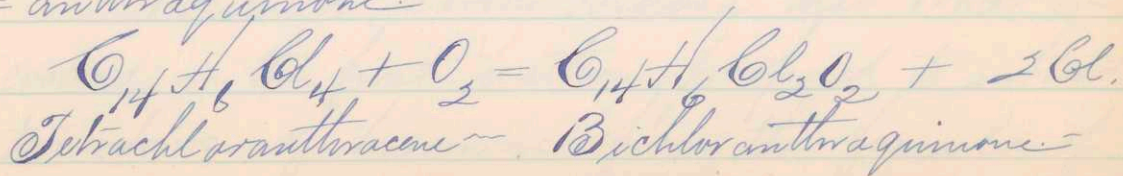 = anthraquinone.
C₁₄H₆Cl₄ + O₂ = C₁₄H₆Cl₂O₂ + 2Cl.
Tetrachloranthracene ~ Bichloranthraquinone =